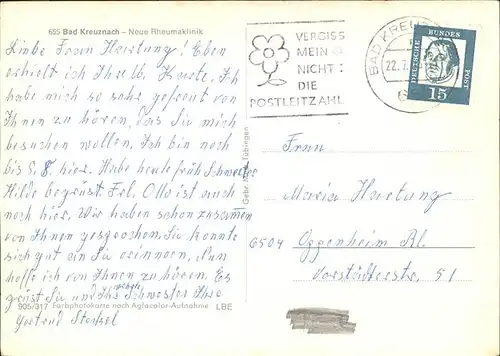 655 Bad Kreuznach – Neue Rheumaklinik
Liebe Frau Hartung! Eben
erhielt ich Ihre lb. Karte. Ich
habe mich so sehr gefreut von
Ihnen zu hören, das Sie mich
besuchen wollen. Ich bin noch
bis 5. 8. hier. Habe heute früh Schwester
Hilde begrüst Frl. Otto ist auch
noch hier. Wir haben schon zusammen
von Ihnen gesprochen. Sie konnte
sich gut an Sie erinnern. Nun
hoffe ich von Ihnen zu hören. Es
grüst Sie und Ihre Schwester Ihre
Gertrud
905/317 Farbphotokarte nach Agfacolor-Aufnahme LBE
Gebr. Tübingen
VERGISS
MEIN
NICHT:
DIE
POSTLEITZAHL
BAD KREUZ
22.7.
DEUTSCHE BUNDES POST
15
Frau
Maria Hartung
6504 Oppenheim Rh.
Vorstädterstr. 51